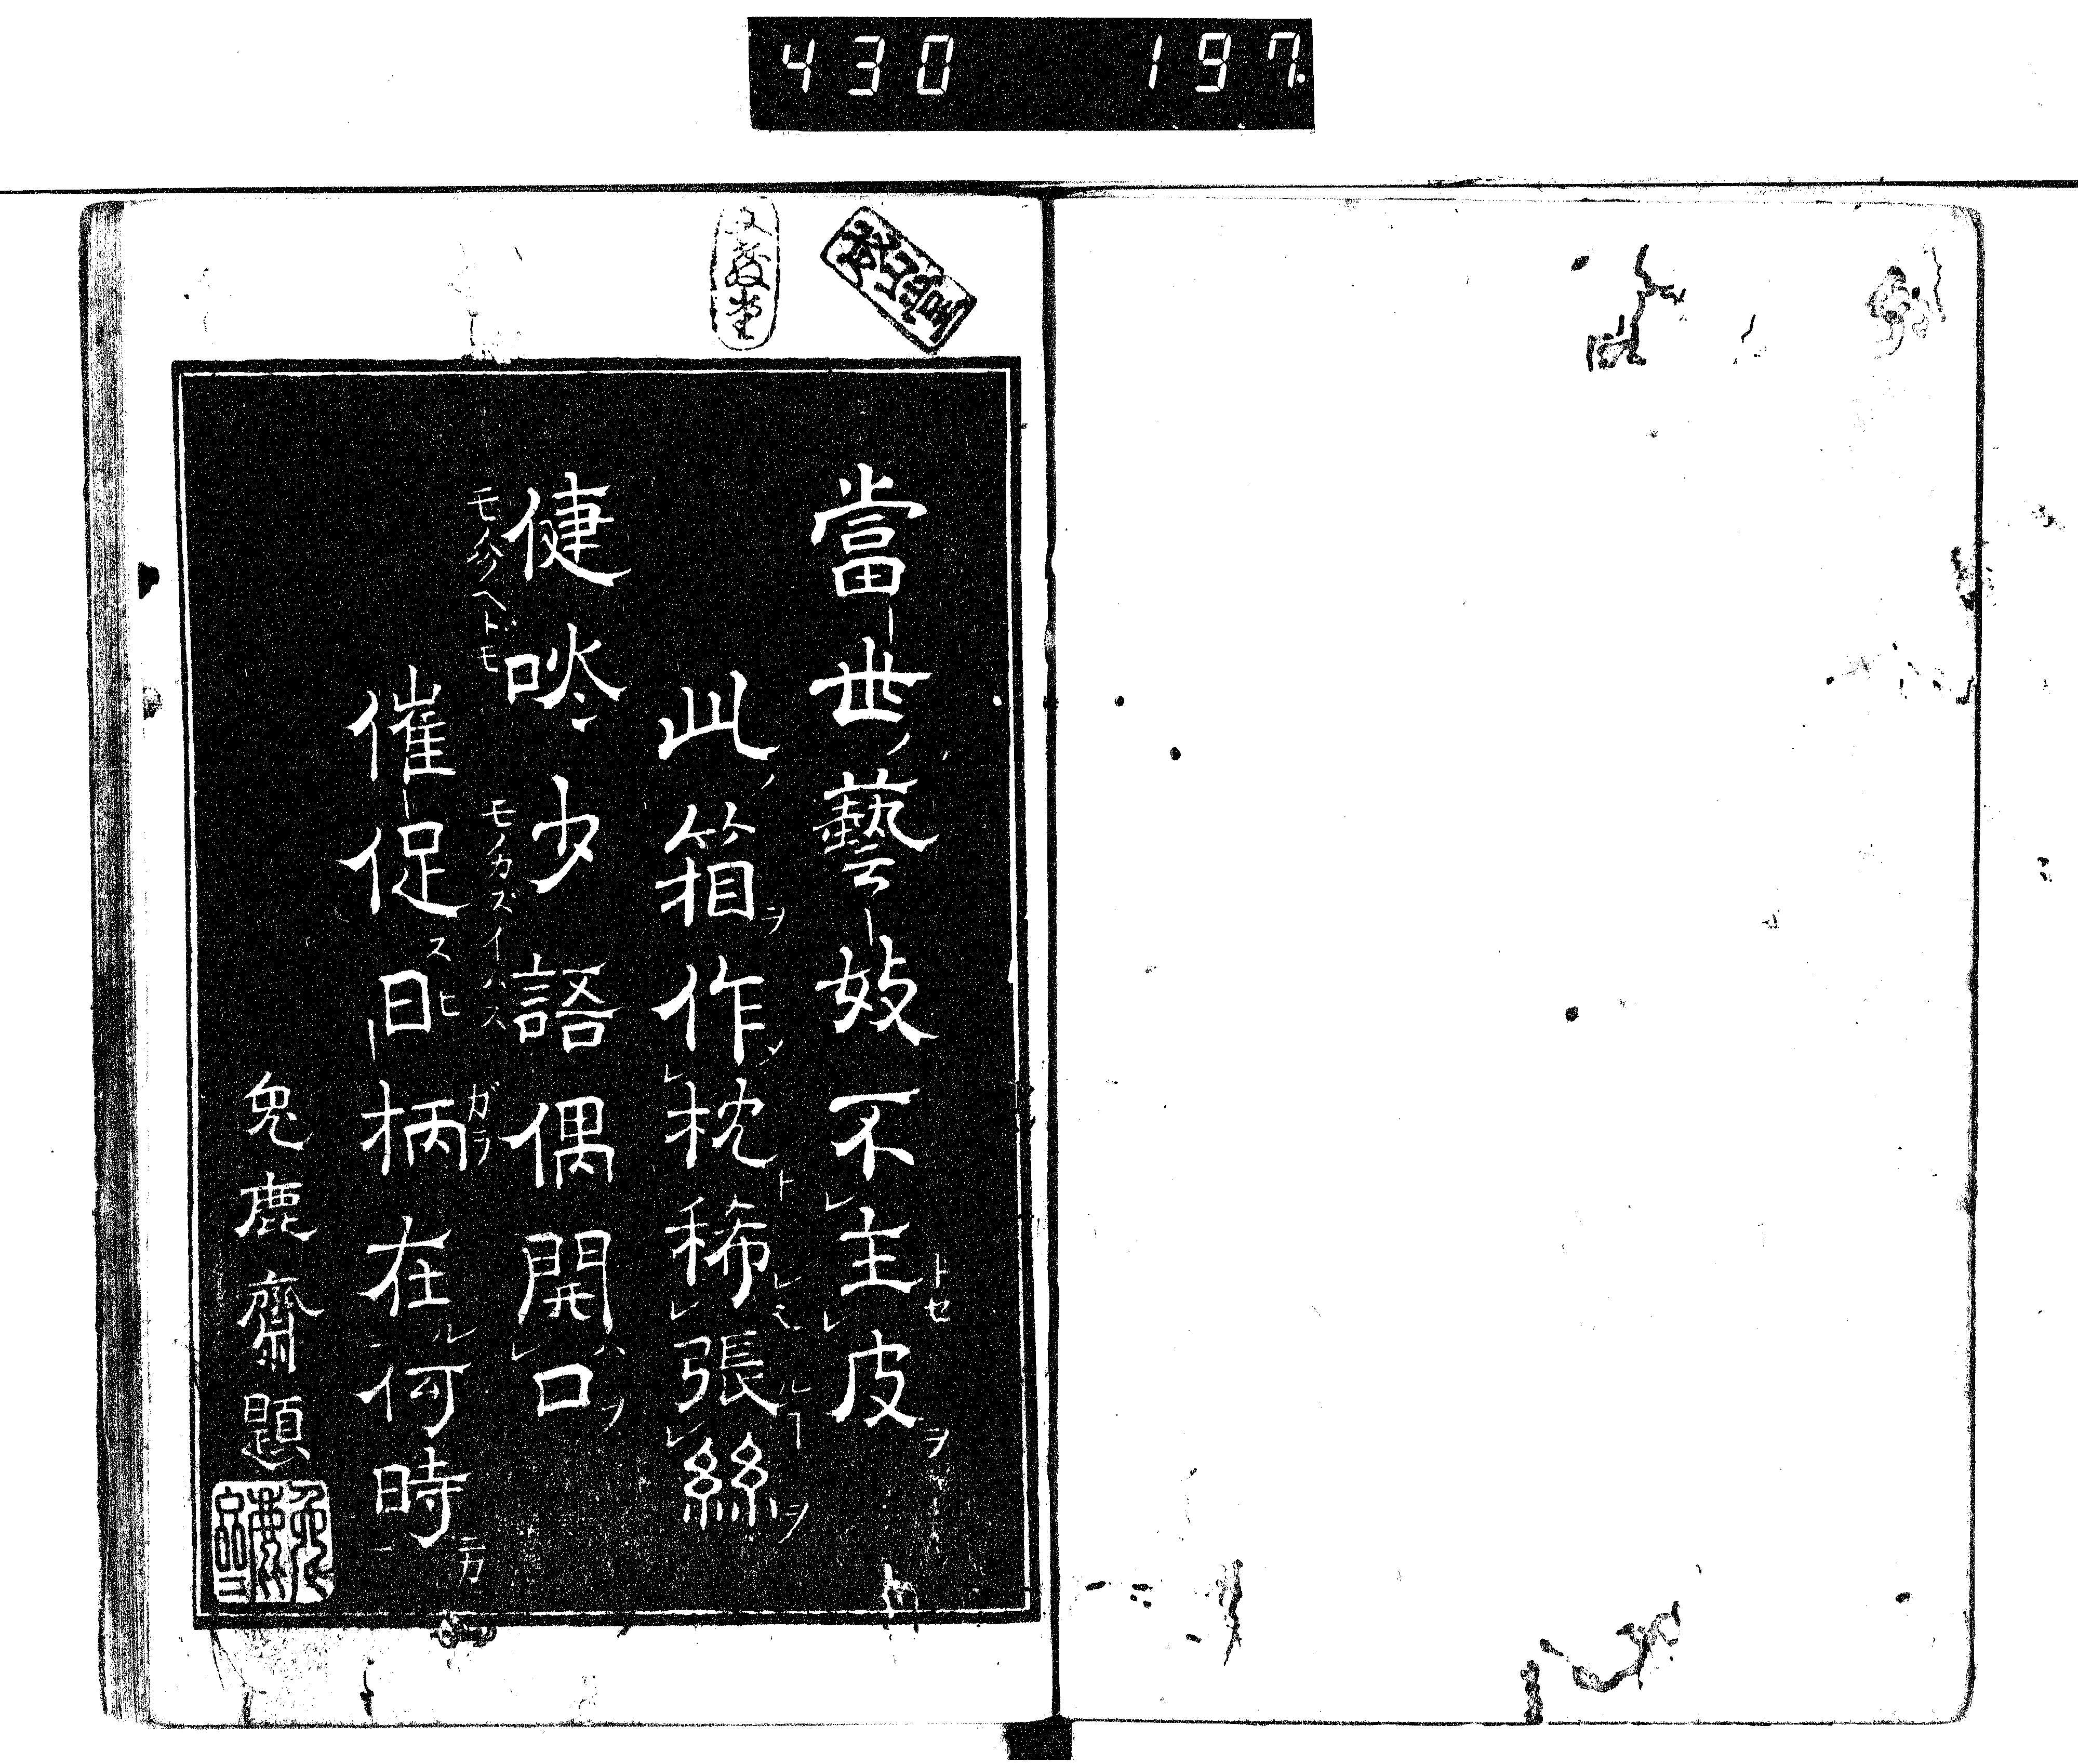 430 197
當世藝妓不主皮
此箱作枕稀張絲
健啖少語偶開口
催促日柄在何時
兎鹿齋題